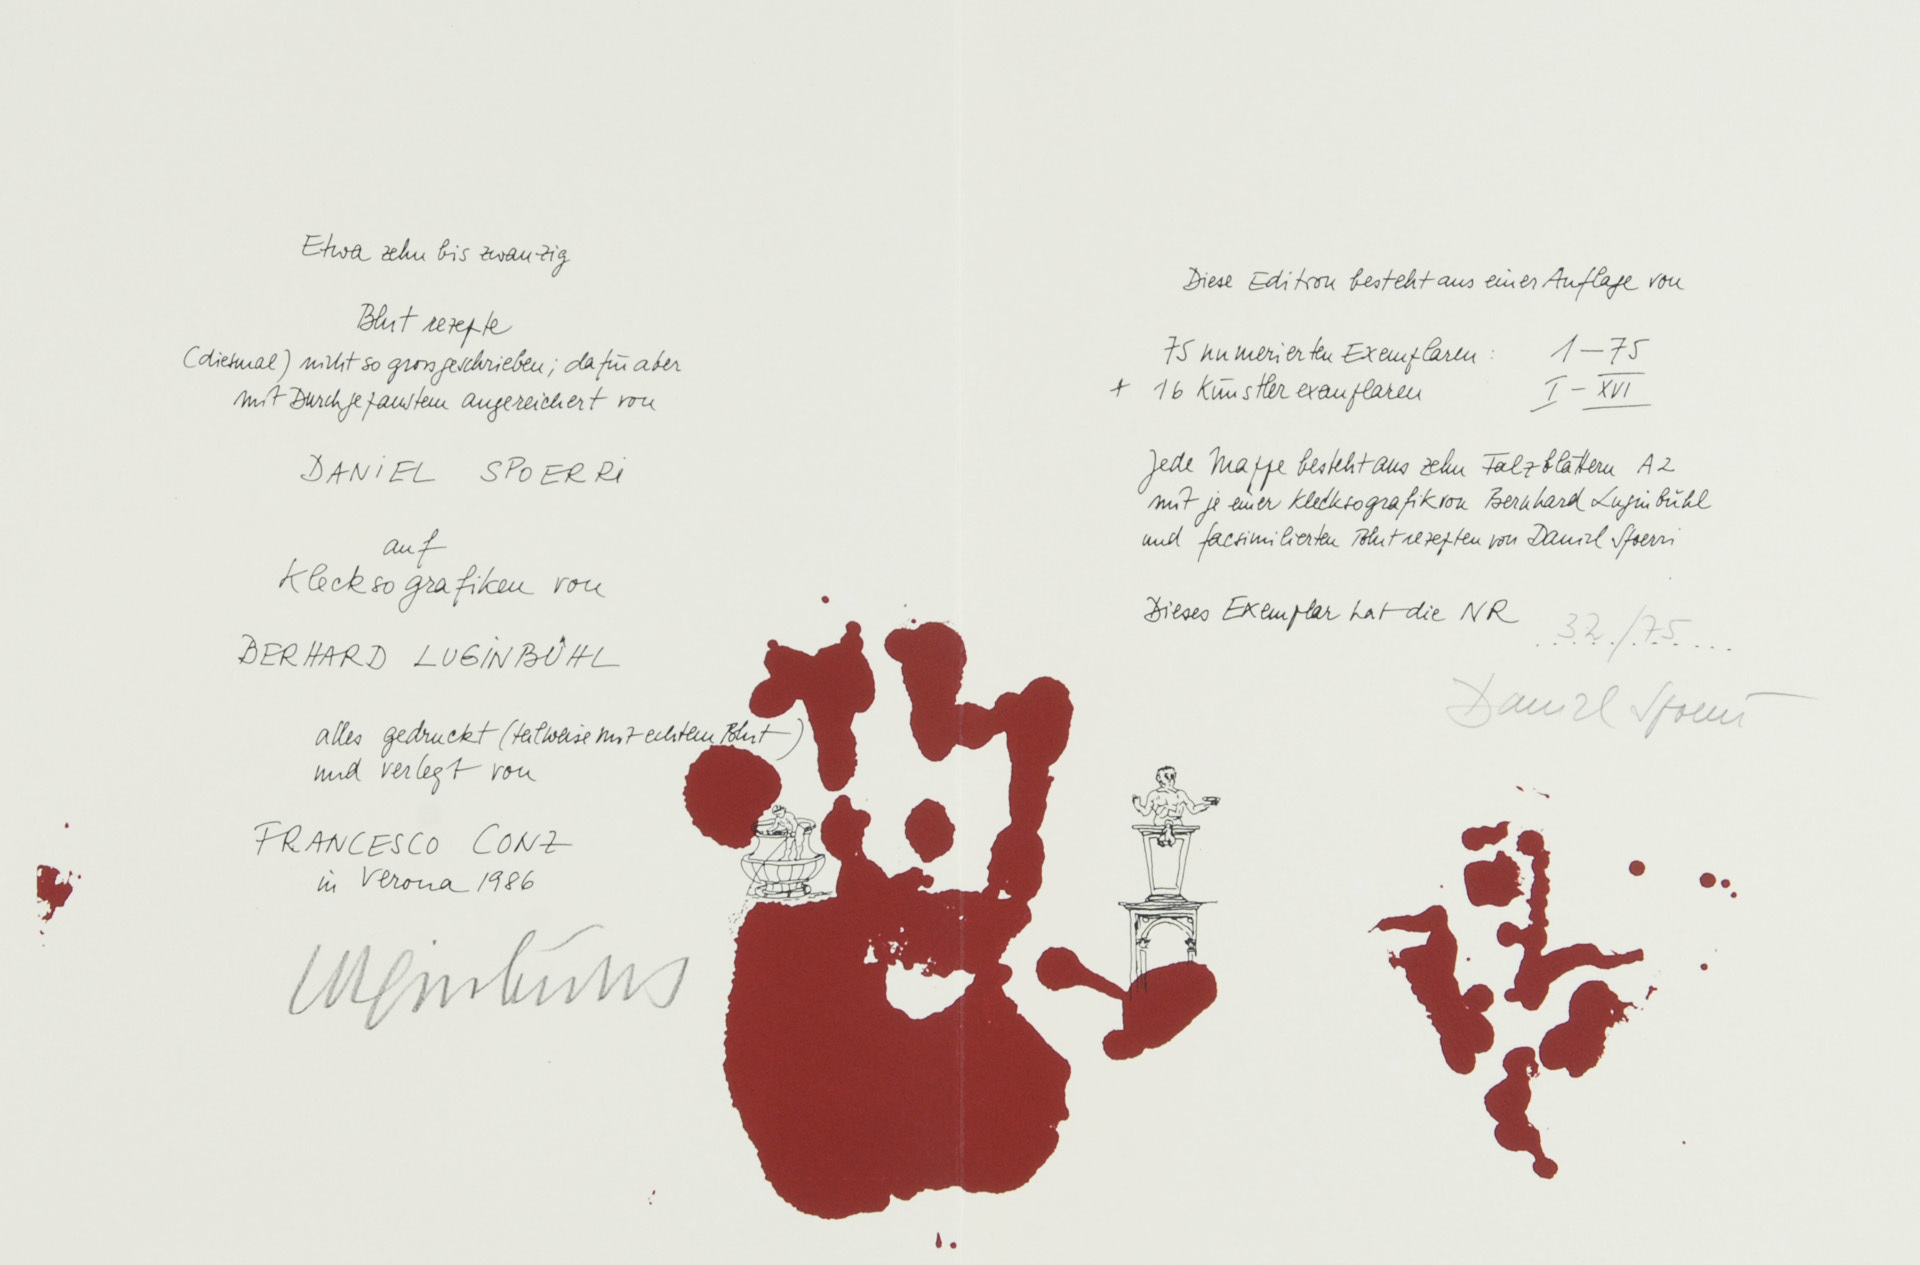 Etwa zehn bis zwanzig
Blut rezepte
(diesmal) nicht so grossgeschrieben; dafür aber
mit Durchgepaustem angereichert von
DANIEL SPOERRI
auf
Klecksografiken von
BERHARD LUGINBÜHL
alles gedruckt (teilweise mit echtem Blut)
und verlegt von
FRANCESCO CONZ
in Verona 1986
Luginbühl
Diese Edition besteht aus einer Auflage von
75 numerierten Exemplaren: 1–75
+ 16 Künstlerexemplaren I – XVI
Jede Mappe besteht aus zehn Falzblättern A2
mit je einer Klecksografik von Bernhard Luginbühl
und facsimilierten Blutrezepten von Daniel Spoerri
Dieses Exemplar hat die NR 32/75
Daniel Spoerri